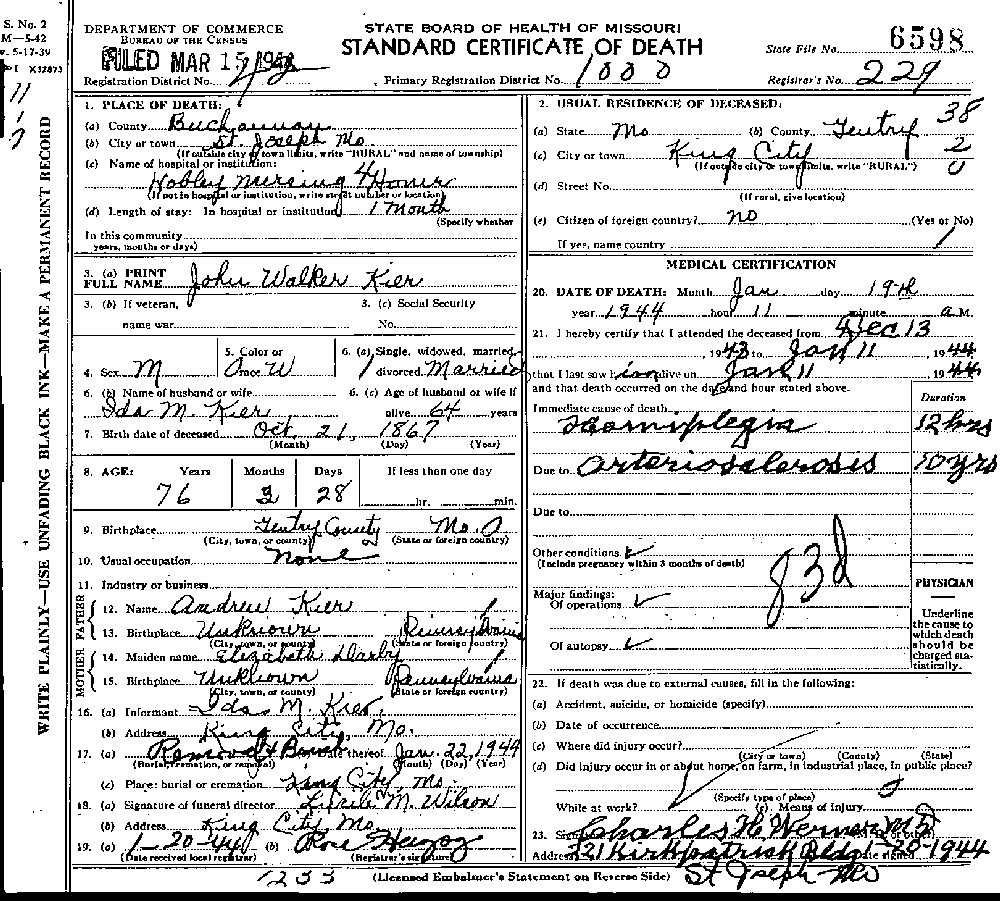 S. No. 2
M—5-42
v. 5-17-39
X32873
11
1
7
WRITE PLAINLY—USE UNFADING BLACK INK—MAKE A PERMANENT RECORD
DEPARTMENT OF COMMERCE
BUREAU OF THE CENSUS
STATE BOARD OF HEALTH OF MISSOURI
STANDARD CERTIFICATE OF DEATH
State File No. 6598
FILED MAR 15 1944
Registration District No.
Primary Registration District No. 1000
Registrar's No. 229
1. PLACE OF DEATH:
(a) County Buchanan
(b) City or town St. Joseph Mo.
(If outside city or town limits, write "RURAL" and name of township)
(c) Name of hospital or institution:
Nobley Nursing Home
(If not in hospital or institution, write street number or location)
(d) Length of stay: In hospital or institution 1 Month
(Specify whether
In this community
years, months or days)
2. USUAL RESIDENCE OF DECEASED: 38
(a) State Mo (b) County Gentry
(c) City or town King City 2
(If outside city or town limits, write "RURAL") 0
(d) Street No.
(If rural, give location)
(e) Citizen of foreign country? no (Yes or No)
If yes, name country
3. (a) PRINT FULL NAME John Walker Kier
3. (b) If veteran, name war
3. (c) Social Security No.
4. Sex M
5. Color or race W
6. (a) Single, widowed, married, divorced Married
6. (b) Name of husband or wife Ida M. Kier
6. (c) Age of husband or wife if alive 64 years
7. Birth date of deceased Oct. 21, 1867
(Month) (Day) (Year)
8. AGE: Years Months Days If less than one day
76 28 hr. min.
9. Birthplace Gentry County Mo.
(City, town, or county) (State or foreign country)
10. Usual occupation None
11. Industry or business
FATHER
12. Name Andrew Kier
13. Birthplace Unknown Pennsylvania
(City, town, or county) (State or foreign country)
MOTHER
14. Maiden name Elizabeth Darby
15. Birthplace Unknown Pennsylvania
(City, town, or county) (State or foreign country)
16. (a) Informant Ida M. Kier
(b) Address King City, Mo.
17. (a) Removal & Burial (b) Date thereof Jan. 22, 1944
(Burial, cremation, or removal) (Month) (Day) (Year)
(c) Place: burial or cremation King City, Mo.
18. (a) Signature of funeral director Lucile M. Wilson
(b) Address King City Mo.
19. (a) 1-20-44 (b) Rose Herzog
(Date received local registrar) (Registrar's signature)
MEDICAL CERTIFICATION
20. DATE OF DEATH: Month Jan day 19th
year 1944 hour 11 minute a M.
21. I hereby certify that I attended the deceased from Dec 13
1943 to Jan 11 1944
that I last saw him alive on Jan 11 1944
and that death occurred on the date and hour stated above.
Duration
Immediate cause of death Hemiplegia 12 hrs
Due to Arteriosclerosis 10 yrs
Due to
Other conditions
(Include pregnancy within 3 months of death)
83d
Major findings:
Of operations
Of autopsy
PHYSICIAN
Underline the cause to which death should be charged statistically.
22. If death was due to external causes, fill in the following:
(a) Accident, suicide, or homicide (specify)
(b) Date of occurrence
(c) Where did injury occur?
(City or town) (County) (State)
(d) Did injury occur in or about home, on farm, in industrial place, in public place?
(Specify type of place)
While at work? (e) Means of injury
23. Signature Charles H. Werner M.D. or other)
Address 321 Kirkpatrick Bldg Date signed 1-20-1944
St Joseph Mo
1233
(Licensed Embalmer's Statement on Reverse Side)